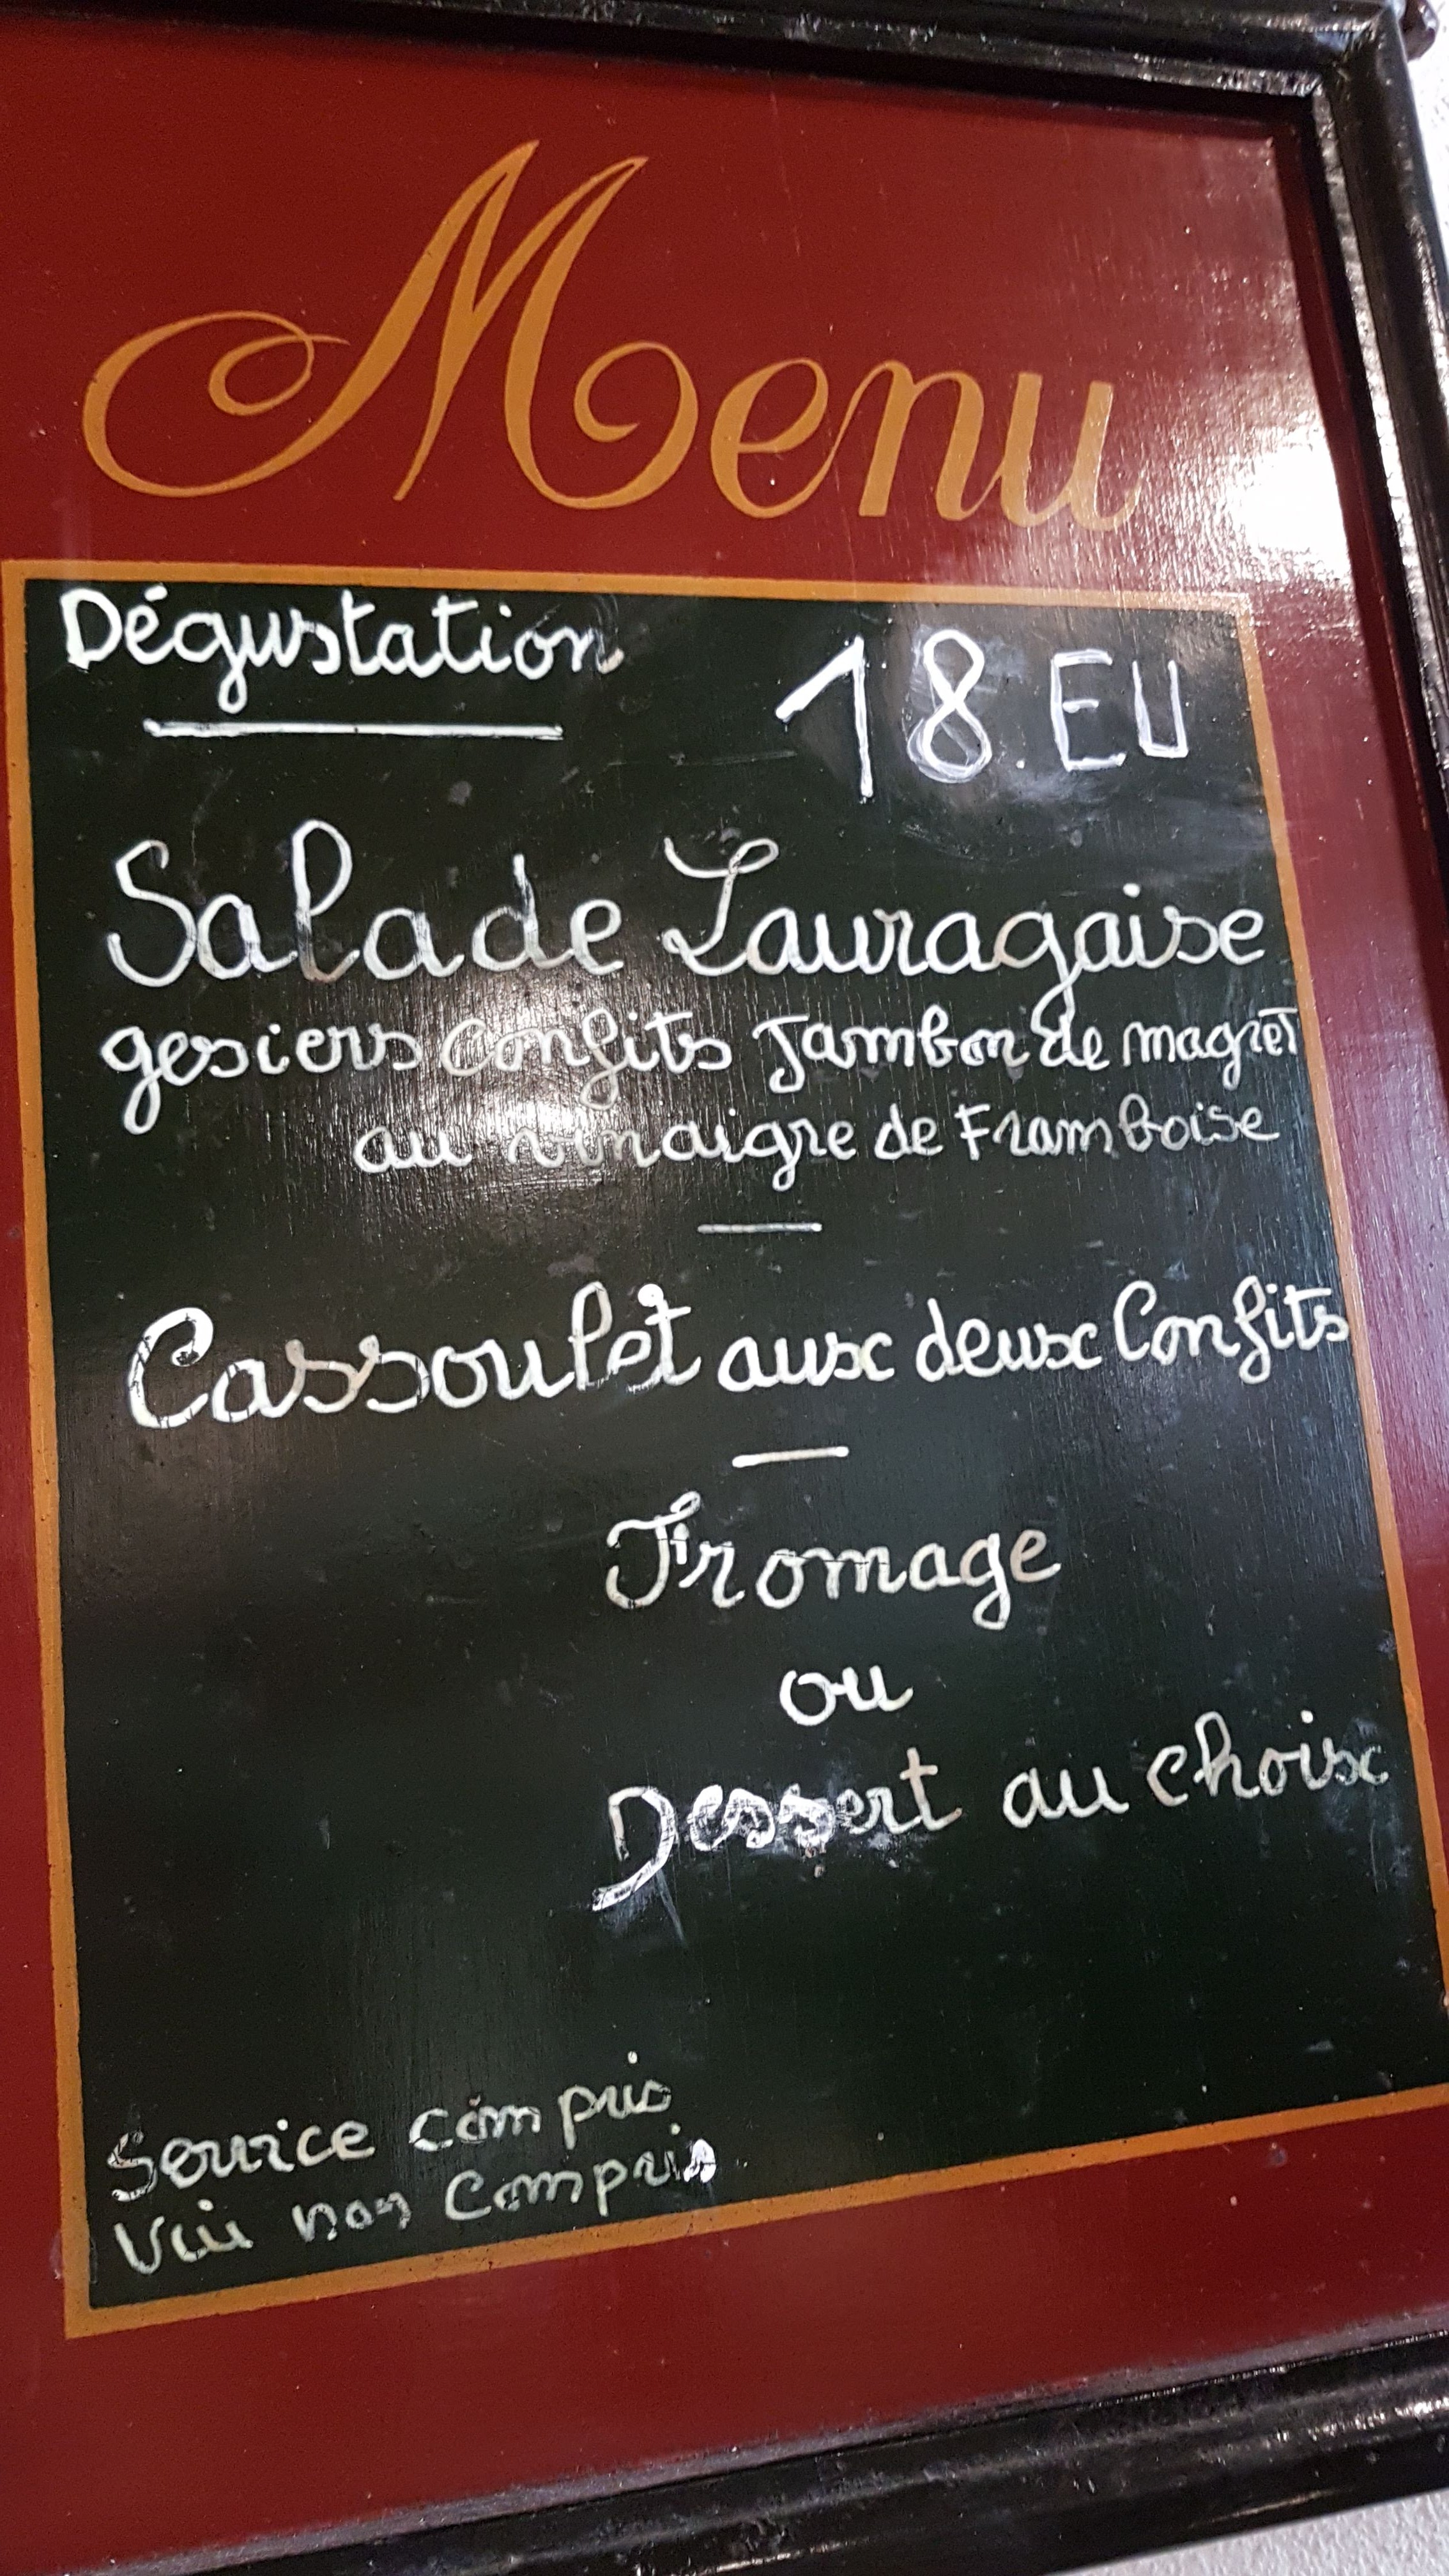 Menu
Dégustation
18.EU
Salade Lauragaise
gesiers confits Jambon de magret
au vinaigre de Framboise
Cassoulet aux deux Confits
Fromage
ou
Dessert au choix
Service compris
Vin non compris